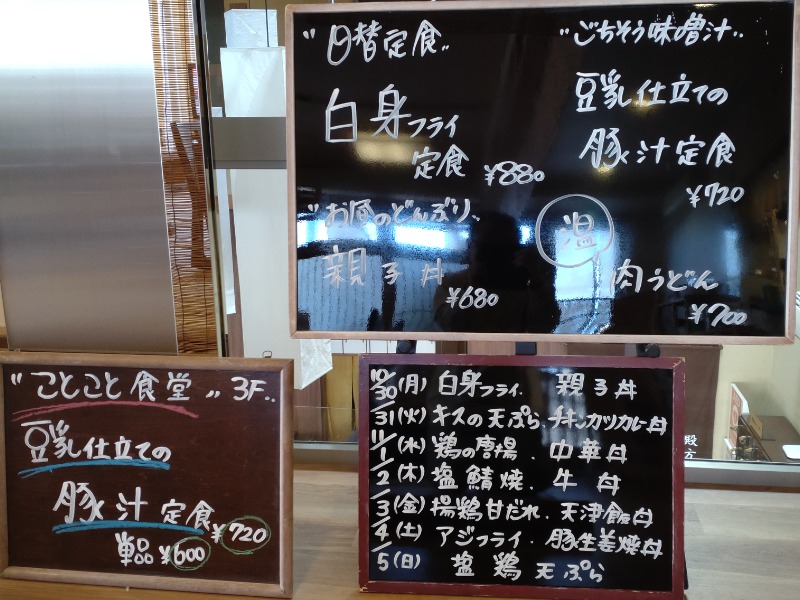 "日替定食"
白身フライ
定食 ¥880
"お昼のどんぶり"
親子丼
¥680
"ごちそう味噌汁"
豆乳仕立ての
豚汁定食
¥720
温
肉うどん
¥700
"ことこと食堂" 3F..
豆乳仕立ての
豚汁定食 ¥720
単品 ¥600
10/30(月) 白身フライ. 親子丼
31(火) キスの天ぷら. チキンカツカレー丼
11/1(水) 鶏の唐揚. 中華丼
2(木) 塩鯖焼. 牛丼
3(金) 揚鶏甘だれ. 天津飯丼
4(土) アジフライ. 豚生姜焼丼
5(日) 塩鶏天ぷら
殿方